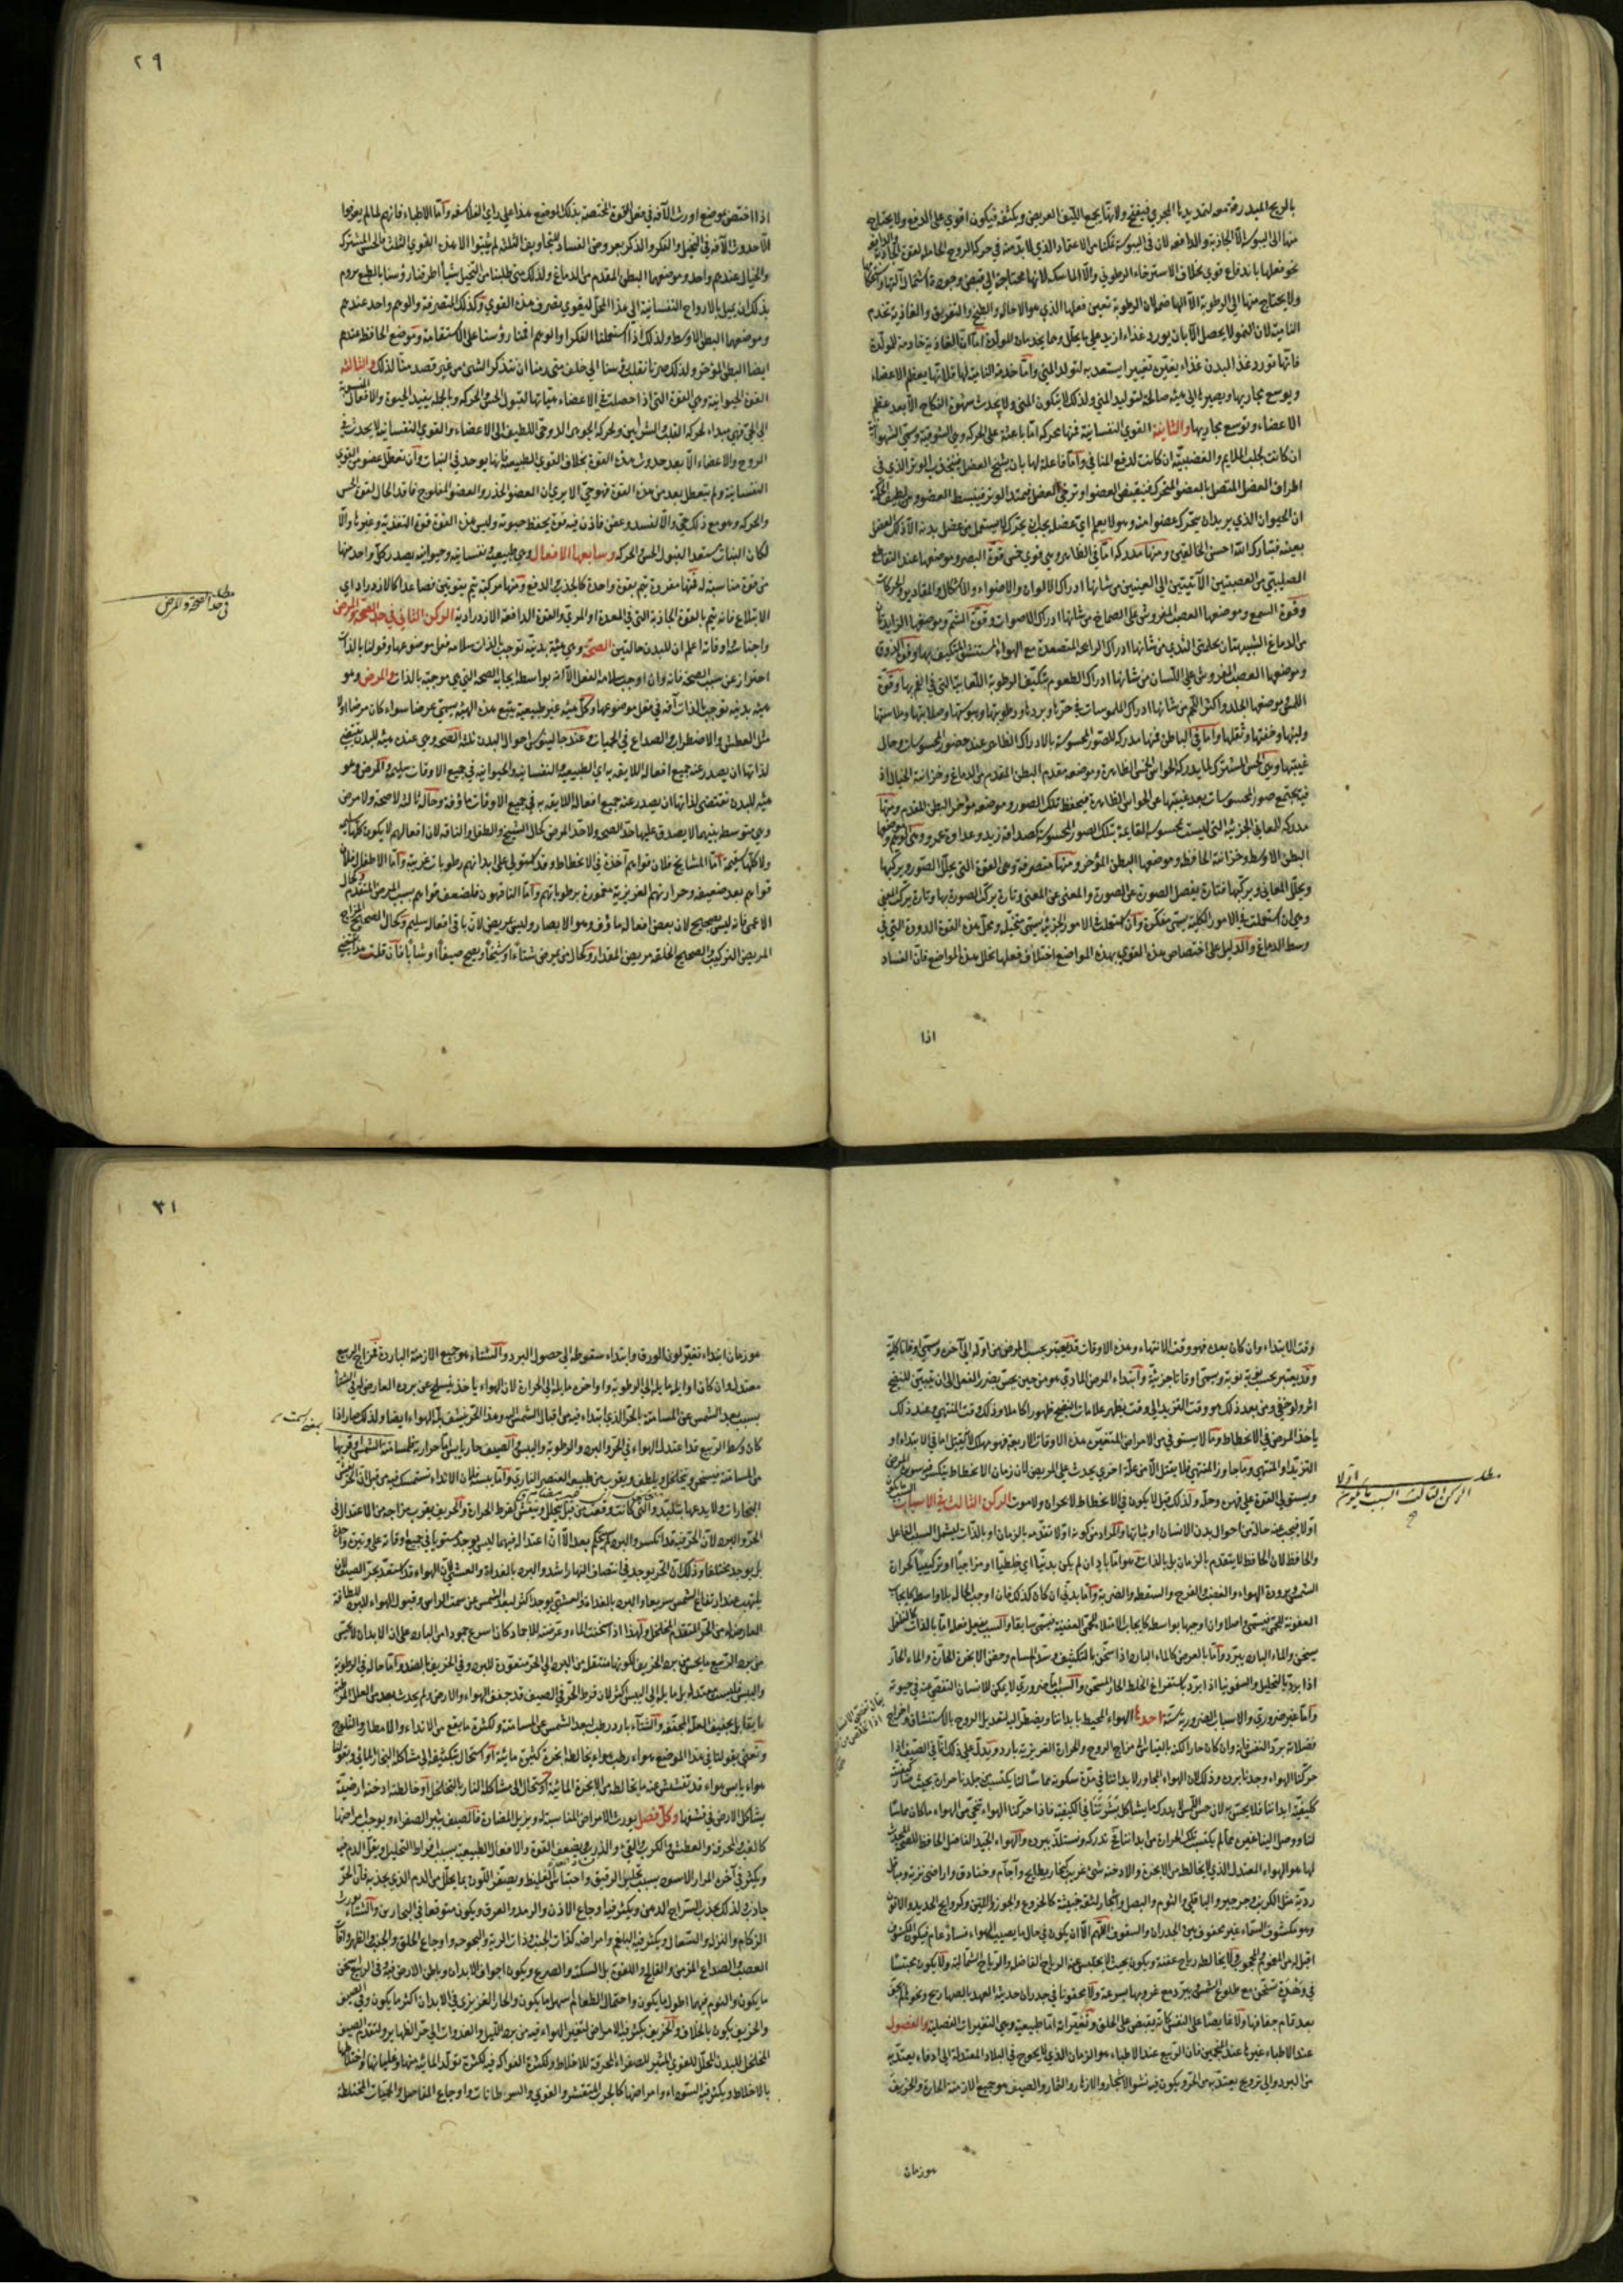 ٢٩
بالريح المبدرقة معه لتمديدها المجرى فيفتح ولانها تجمع الليف العريض ويكثفه فيكون اقوي على الدفع ولا يحتاج
منها الى اليبوسة الا الجاذبة والدافعة لان في اليبوسة تمكنا من الاعتماد الذي لا بد منه في حركة الروح الحاملة لقوة الجاذبة والدافعة
نحو فعلها باندفاع قوي بخلاف الاسترخاء الرطوبي والا الماسكة لانها محتاجة الى قبض وجودة اشتمال آلتها
ولا يحتاج منها الى الرطوبة الا الهاضمة لان الرطوبة تعين فعلها الذي هو الاحالة والطبخ والتفريق والغاذية تخدم
النامية لان النمو لا يحصل الا بان يورد غذاء ازيد على ما يحلل وهما يخدمان للمولدة اما ان الغاذية خادمة للمولدة
فانها تورد غذاء البدن غذاء يغتير تغييرا يستعد به لتولد المني واما خدمة النامية لها فلانها يعظم الاعضاء
ويوسع مجاريها ويصيرها الى هيئة صالحة لتوليد المني ولذلك لا يتكون المني ولا يحدث شهوة النكاح الا بعد عظم
الاعضاء وتوسع مجاريها والثانية القوي النفسانية فمنها محركة اما باعثة على الحركة وهي الشوقية وتسمى الشهوانية
ان كانت لجلب الملايم والغضبية ان كانت لدفع المنافي واما فاعلة لها بان يشنج العضل فينجذب الوتر الذي في
اطراف العضل المتصل بالعضو المتحرك فينقبض العضو او ترخي العضل فيمتد الوتر فينبسط العضو ومن لطيف الحكمة
ان الحيوان الذي يريد ان يتحرك عضوا منه وهو لا يعلم اي عضل يجب ان يتحرك لا يستعمل من عضل بدنه الا ذلك العضل
بعينه فتبارك الله احسن الخالقين ومنها مدركة اما في الظاهر وهي قوي خمس قوة البصر وموضعها عند التقاطع
الصليبي من العصبتين الآتيتين الى العينين من شانها ادراك الالوان والاضواء والاشكال والمقادير والحركات
وقوة السمع وموضعها العصب المفروش على الصماخ من شانها ادراك الاصوات وقوة الشم وموضعها الزايدتان
من الدماغ الشبيهتان بحلمتي الثدي من شانها ادراك الرايحة المتصعدة مع الهواء المستنشق المتكيف بها وقوة الذوق
وموضعها العصب المفروش على اللسان من شانها ادراك الطعوم بتكيف الرطوبة اللعابية التي في الفم بها وقوة
اللمس وموضعها الجلد واكثر اللحم من شانها ادراك الملموسات في حرها وبردها ورطوبتها ويبوستها وصلابتها وملاستها
ولينها وخفتها وثقلها واما في الباطن فمنها مدركة للصور المحسوسة بالادراك الظاهر عند حضور المحسوسات وحال
غيبتها وهي الحس المشترك لما يدركه الحواس الخمس الظاهرة وموضعه مقدم البطن المقدم من الدماغ وخزانته الخيال اذ
فيه يجتمع صور المحسوسات بعد غيبتها عن الحواس الظاهرة فيحفظ تلك الصور وموضعه مؤخر البطن المقدم ومنها
مدركة للمعاني الجزئية التي ليست بمحسوسة القايمة بتلك الصور المحسوسة كصداقة زيد وعداوة عمرو وهي الوهم وموضعها
البطن الاوسط وخزانته الحافظة وموضعها البطن المؤخر ومنها متصرفة وهي القوة التي يحلل الصور ويركبها
ويحلل المعاني ويركبها فتارة يفصل الصورة عن الصورة والمعنى عن المعنى وتارة يركب الصورة بها وتارة يركب المعنى
وهي ان استعملت في الامور الكلية يسمى مفكرة وان استعملت في الامور الجزئية يسمى متخيلة ومحل هذه القوة الدودة التي في
وسط الدماغ والدليل على اختصاص هذه القوي بهذه المواضع اختلاف فعلها بخلل هذه المواضع فان الفساد
اذا
اذا اختص بموضع اورث الآفة في فعل القوة المختصة بذلك الموضع هذا على راي الفلاسفة واما الاطباء فانهم لما لم يعرفوا
الا حدوث الآفة في التخيل والفكر والذكر بعروض الفساد للتجاويف الثلثة لم يثبتوا الا هذه القوي الثلث فالحس المشترك
والخيال عندهم واحد وموضعهما البطن المقدم من الدماغ ولذلك متى طلبنا من التخيل شيأ اطرقنا رؤسنا بالطبع نروم
بذلك ان يميل بالارواح النفسانية الى هذا المحل ليقوي تصرف هذه القوي وكذلك المتصرفة والوهم واحد عندهم
وموضعهما البطن الاوسط ولذلك اذا استعملنا الفكر او الوهم اقمنا رؤسنا على الاستقامة وموضع الحافظة عندهم
ايضا البطن المؤخر ولذلك صرنا نقلب رؤسنا الى خلف متى رمنا ان نتذكر الشئ من غير قصد منا لذلك والثالثة
القوة الحيوانية وهي القوة التي اذا حصلت في الاعضاء هيأتها لقبول الحس والحركة وبالجملة يفيد الحيوة والافعال المنسوبة
الى الحي فهي مبداء لحركة القلب والشرايين ولحركة الجوهر الروحي اللطيف الى الاعضاء والقوي النفسانية لا يحدث في
الروح والاعضاء الا بعد حدوث هذه القوة بخلاف القوي الطبيعية فانها يوجد في النبات وان تعطل عضو من القوي
النفسانية ولم يتعطل بعد من هذه القوة فهو حي الا يري ان العضو الخدر والعضو المفلوج فاقد الحال لقوة الحس
والحركة وهو مع ذلك حي والا لفسد وعفن فاذن فيه قوة يحفظ حيوته وليس هذه القوة قوة التغذية وغيرها والا
لكان النبات مستعدا لقبول الحس والحركة وسابعها الافعال وهي طبيعية ونفسانية وحيوانية يصدر كل واحد منها
من قوة مناسبة له فمنها مفردة يتم بقوة واحدة كالجذب والدفع ومنها مركبة يتم بقوتين فصاعدا كالازدراد اي
الابتلاع فانه يتم بالقوة الجاذبة التي في المعدة والمرئ والقوة الدافعة الازدرادية الركن الثاني في حد الصحة والمرض
مطلب في حد الصحة والمرض
واجناسه واوقاته اعلم ان للبدن حالتين الصحة وهي هيئة بدنية توجب بالذات سلامة فعل موضوعها وقولنا بالذات
احتراز عن سبب الصحة فانه وان اوجب سلامة الفعل الا انه بواسطة ايجابه الصحة التي هي موجبة بالذات والمرض وهو
هيئة بدنية توجب بالذات آفة في فعل موضوعها وكل هيئة غير طبيعية يتبع هذه الهيئة يسمى عرضا سواء كان مرضا اولا
مثل العطش والاضطراب والصداع في الحميات وعند جالينوس احوال البدن ثلثة الصحة وهي عنده هيئة للبدن تقتضي
لذاتها ان يصدر عنه جميع افعاله اللايقة به اي الطبيعية والنفسانية والحيوانية في جميع الاوقات سليمة والمرض وهو
هيئة للبدن تقتضي لذاتها ان يصدر عنه جميع افعاله اللايقة به في جميع الاوقات مأوفة وحالة ثالثة لا صحة ولا مرض
وهي متوسط بينهما لا يصدق عليها حد الصحة ولا حد المرض كحال الشيخ والطفل والناقه لان افعالهم لا يكون كلها سليمة
ولا كلها سقيمة اما المشايخ فلان قواهم آخذة في الانحطاط وقد استولى على ابدانهم رطوبات غريبة واما الاطفال فلان
قواهم بعد ضعيفة وحرارتهم الغريزية مغمورة برطوباتهم واما الناقهون فلضعف قواهم بسبب المرض المتقدم وكحال
الاعمى فانه ليس بصحيح لان بعض افعاله مأوف وهو الابصار وليس بمريض لان باقي افعاله سليم وكحال الصحيح المزاج
المريض التركيب والصحيح الخلقة مريض المقدار وكحال من يمرض شتاء او شيخا ويصح صيفا او شابا فان قلت
٣١
وقت الابتداء وان كان بعده فهو وقت الانتهاء وهذه الاوقات قد يعتبر بحسب المرض من اوله الى آخره ويسمى اوقاتا كلية
وقد يعتبر بحسب نوبة نوبة ويسمى اوقاتا جزئية وابتداء المرض المادي هو من حين يحس بضرر الفعل الى ان يتبين للنضج
اثر ولو خفي ومن بعد ذلك هو وقت التزيد الى وقت يظهر علامات النضج ظهورا كاملا وذلك وقت المنتهى وعند ذلك
ياخذ المرض في الانحطاط وما لا يستوفي من الامراض المتغيرة هذه الاوقات الاربعة فهو مهلك
التزيد او المنتهى وما جاوز المنتهى فلا يقتل الا من علة اخري يحدث على المريض لان زمان الانحطاط ينكسر فيه سورة المرض
ويستولى القوة على قهره وحله ولذلك قيل لا يكون في الانحطاط لا بحران ولا موت الركن الثالث في الاسباب
مطلب الركن الثالث السبب ما يكون اولا
اولا فيجب عنه حالة من احوال بدن الانسان او ثباتها والمراد من كونه اولا تقدمه بالزمان او بالذات ليشمل السبب الفاعل
والحافظ لان الحافظ لا يتقدم بالزمان بل بالذات وهو اما باد ان لم يكن بدنيا اي خلطيا او مزاجيا او تركيبيا كحرارة
الشمس وبرودة الهواء والغضب والفرح والسقطة والضربة واما بدني ان كان كذلك فان اوجب الحالة بلا واسطة كايجاب
العفونة للحمى فيسمى واصلا وان اوجبها بواسطة كايجاب الامتلاء للحمى العفنية فيسمى سابقا والسبب يفعل فعله اما بالذات كالفلفل
يسخن والماء البارد يبرد واما بالعرض كالماء البارد اذا سخن بالتكثيف وسد المسام وحقن الابخرة الحارة والماء الحار
اذا برد بالتحليل والسقمونيا اذا برد باستفراغ الخلط الحار المسخن والسبب اما ضروري لا يمكن للانسان التفصي عنه في حيوته
واما غير ضروري والاسباب الضرورية ستة احدها الهواء المحيط بابداننا ويضطر اليه لتعديل الروح بالاستنشاق واخراج
فضلاته برد النفس فانه وان كان حارا لكنه بالقياس الى مزاج الروح والحرارة الغريزية بارد ويدل على ذلك انا في الصيف اذا
حركنا الهواء وجدنا برده وذلك لان الهواء المجاور لابداننا في مدة سكونه مماسا لنا يكتسب من جلدنا حرارة بحيث
كيفيته ابداننا فلا يحس به لان حس اللمس لا يدرك ما يشاكل بشرتنا في الكيفية فاذا حركنا الهواء تنحى من الهواء ما كان مماسا
لنا ووصل الينا غيره مما لم يكتسب تلك الحرارة من ابداننا فح ندركه ونستلذ ببرده والهواء الجيد الفاضل الحافظ للصحة
لها هو الهواء المعتدل الذي لا يخالطه من الابخرة والادخنة شئ غريب كبخار بطايح وآجام وخنادق واراضي نزية ومباقل
ردية مثل الكرنب وجرجير والباقلي والثوم والبصل واشجار لثقة خبيثة كالخروع والجوز والتين وكروايح الحديد والاتون
وهو مكشوف للسماء غير محقوف بين الجدران والسقوف اللهم الا ان يكون في حال ما يصيب الهواء فساد عام فيكون المكشوف
اقبل له من المغموم والمحجوب ولا يخالطه رياح عفنة ويكون بحيث لا يحتبس عنه الرياح الفاضلة والرياح الشمالية ولا يكون محتبسا
في وهدة تسخن مع طلوع الشمس ويبرد مع غروبها بسرعة ولا محقونا في جدران حديثة العهد بالصهاريج ونحوه لم يجف
بعد تمام جفافها ولا عاصيا على النفس كانه يقبض على الحلق وتغيراته اما طبيعية وهي التغيرات الفصلية والفصول
عند الاطباء غيرها عند المنجمين فان الربيع عند الاطباء هو الزمان الذي لا يحوج في البلاد المعتدلة الى ادفاء يعتد به
من البرد والى ترويح يعتد به من الحر ويكون فيه نشو الاشجار والازهار والثمار والصيف هو جميع الازمنة الحارة والخريف
هو زمان
هو زمان ابتداء تغير لون الورق وابتداء سقوطه الى حصول البرد والشتاء هو جميع الازمنة الباردة فمزاج الربيع
معتدل وان كان اوايله مايلة الى الرطوبة واواخره مايلة الى الحرارة لان الهواء ياخذ ينسلخ عن برده العارض له في الشتاء
بسبب بعد الشمس عن المسامتة بالحر الذي ابتداء فيه من اقبال الشمس اليه وهذا الحر ينشف بلة الهواء ايضا ولذلك صار اذا
كان وسط الربيع قد اعتدل الهواء في الحر والبرد والرطوبة واليبس والصيف حار يابس اما حرارته فلمسامتة الشمس او قربها
من المسامتة فيسخن ويتخلخل ويلطف ويقرب من طبيعة العنصر الناري واما يبسه فلان الانداء
الحر والبرد لان الحر فيه قد انكسر والبرد لم يستحكم بعد الا ان اعتداله فيهما ليس يوجد مستويا في جميع اوقاته على وتيرة واحدة
بل يوجد مختلفا وذلك ان الحر يوجد في انتصاف النهار اشد والبرد بالغداة والعشي لان الهواء قد استعد بحر الصيف لان
يلتهب عند ارتفاع الشمس سريعا والبرد بالغداة والعشي يوجد اكثر لبعد الشمس عن سمت الراس وقبول الهواء للبرد للطافة
العارضة له من الحر المتقدم المخلخل ولهذا اذا اسخنت الماء وعرضته للاجماد كان اسرع جمودا من البارد على ان الابدان لا يحس
من برد الربيع ما يحس من برد الخريف لكونها منتقلة من البرد الى الحر متعودة للبرد وفي الخريف بالضد واما حاله في الرطوبة
واليبس فليست معتدلة بل مايلة الى اليبس اكثر لان فرط الحر في الصيف قد جفف الهواء والارض ولم يحدث بعد من العلل المرطبة
ما يقابل تجفيف العلل المجففة والشتاء بارد رطب لبعد الشمس عن المسامتة ولكثرة ما يقع من الانداء والامطار والثلوج
ونعني بقولنا في هذا الموضع هواء رطب هواء يخالطه ابخرة كثيرة مائية او استحال بتكثيفه الى مشاكلة البخار المائي وبقولنا
هواء يابس هواء قد تفشش عنه ما يخالطه من الابخرة المائية او استحال الى مشاكلة النار بالتخلخل او خالطه ادخنة ارضية
يشاكل الارض في نشفها وكل فصل يورث الامراض المناسبة له ويزيل المضادة فالصيف يثير الصفراء ويوجب امراضها
كالغب والمحرقة والعطش والكرب والقئ والذرب ويضعف القوة والافعال الطبيعية بسبب افراط التحليل ويقل الدم فيه
ويكثر في آخره المرار الاسود بسبب تحليل الرقيق واحتباس الغليظ ويصفر اللون بما يحلل من الدم الذي يجذبه فان الحر
جاذب ولذلك يجذب السراج الدهن ويكثر فيه اوجاع الاذن والرمد والعرق ويكون متوقعا في البحارين والشتاء يورث
الزكام والنزلة والسعال ويكثر فيه البلغم وامراضه كذات الجنب وذات الرية والبحوحة واوجاع الحلق والجنب والظهر وآفات
العصب والصداع المزمن والفالج واللقوة بل السكتة والصرع ويكون اجواف الابدان وباطن الارض فيه وفي الربيع اسخن
ما يكون والنوم فيهما اطول ما يكون واحتمال الطعام اسهل ما يكون والحار الغريزي في الابدان اكثر ما يكون وفي الصيف
والخريف يكون بالخلاف والخريف يكثر فيه الامراض لتغير الهواء فيه من برد الليل والغدوات الى حر الظهاير ولتقدم الصيف
المخلخل للبدن المحلل للقوي المثير للصفراء المحرقة للاخلاط ولكثرة الفواكه فيه لكثرة تولد المائية منها وغليانها واختلاطها
بالاخلاط ويكثر فيه السوداء وامراضها كالجرب المتقشر والقوبي والسرطانات واوجاع المفاصل والحميات المختلطة